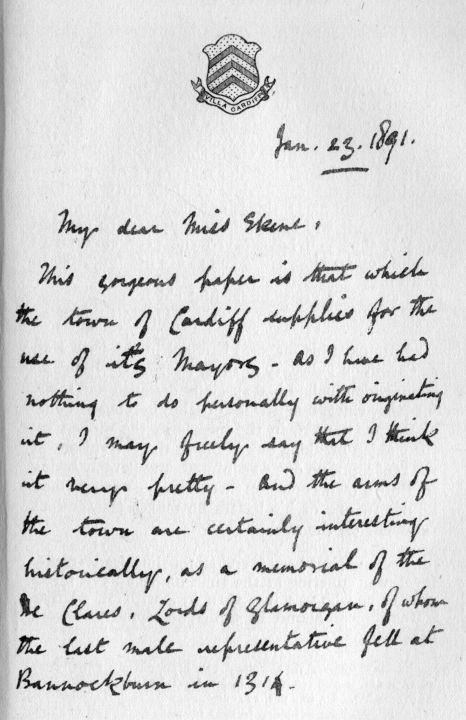 VILLA CARDIFF
Jan. 23. 1891.
My dear Miss Skene,
This gorgeous paper is that which
the town of Cardiff supplies for the
use of its Mayors - As I have had
nothing to do personally with originating
it, I may freely say that I think
it very pretty - And the arms of
the town are certainly interesting
historically, as a memorial of the
De Clares, Lords of Glamorgan, of whom
the last male representative fell at
Bannockburn in 1314.